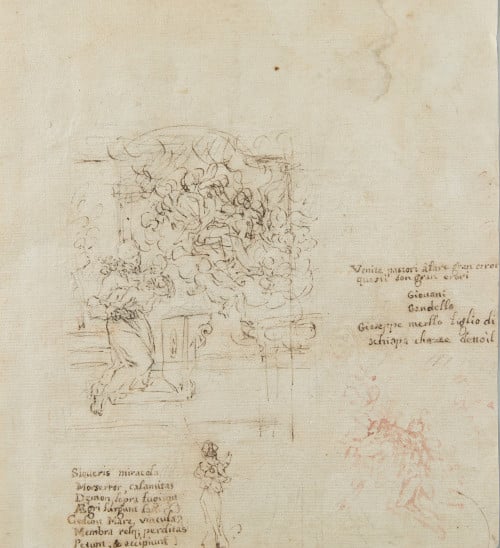 Venite pastori à fare gran error
questi son gran erori
Giovani
Gandello
Giuseppe merllo figlio di
schiapa
Siqueris miracola
Morserror, calamitas
Demon, lepra fugiunt
Ægri surgunt
Cedun Mare, vincula
Membra resq; perditas
Petunt, & accipiunt